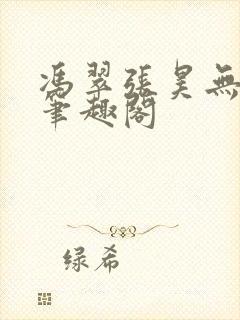 馮翠張昊無
筆趣閣
绿希